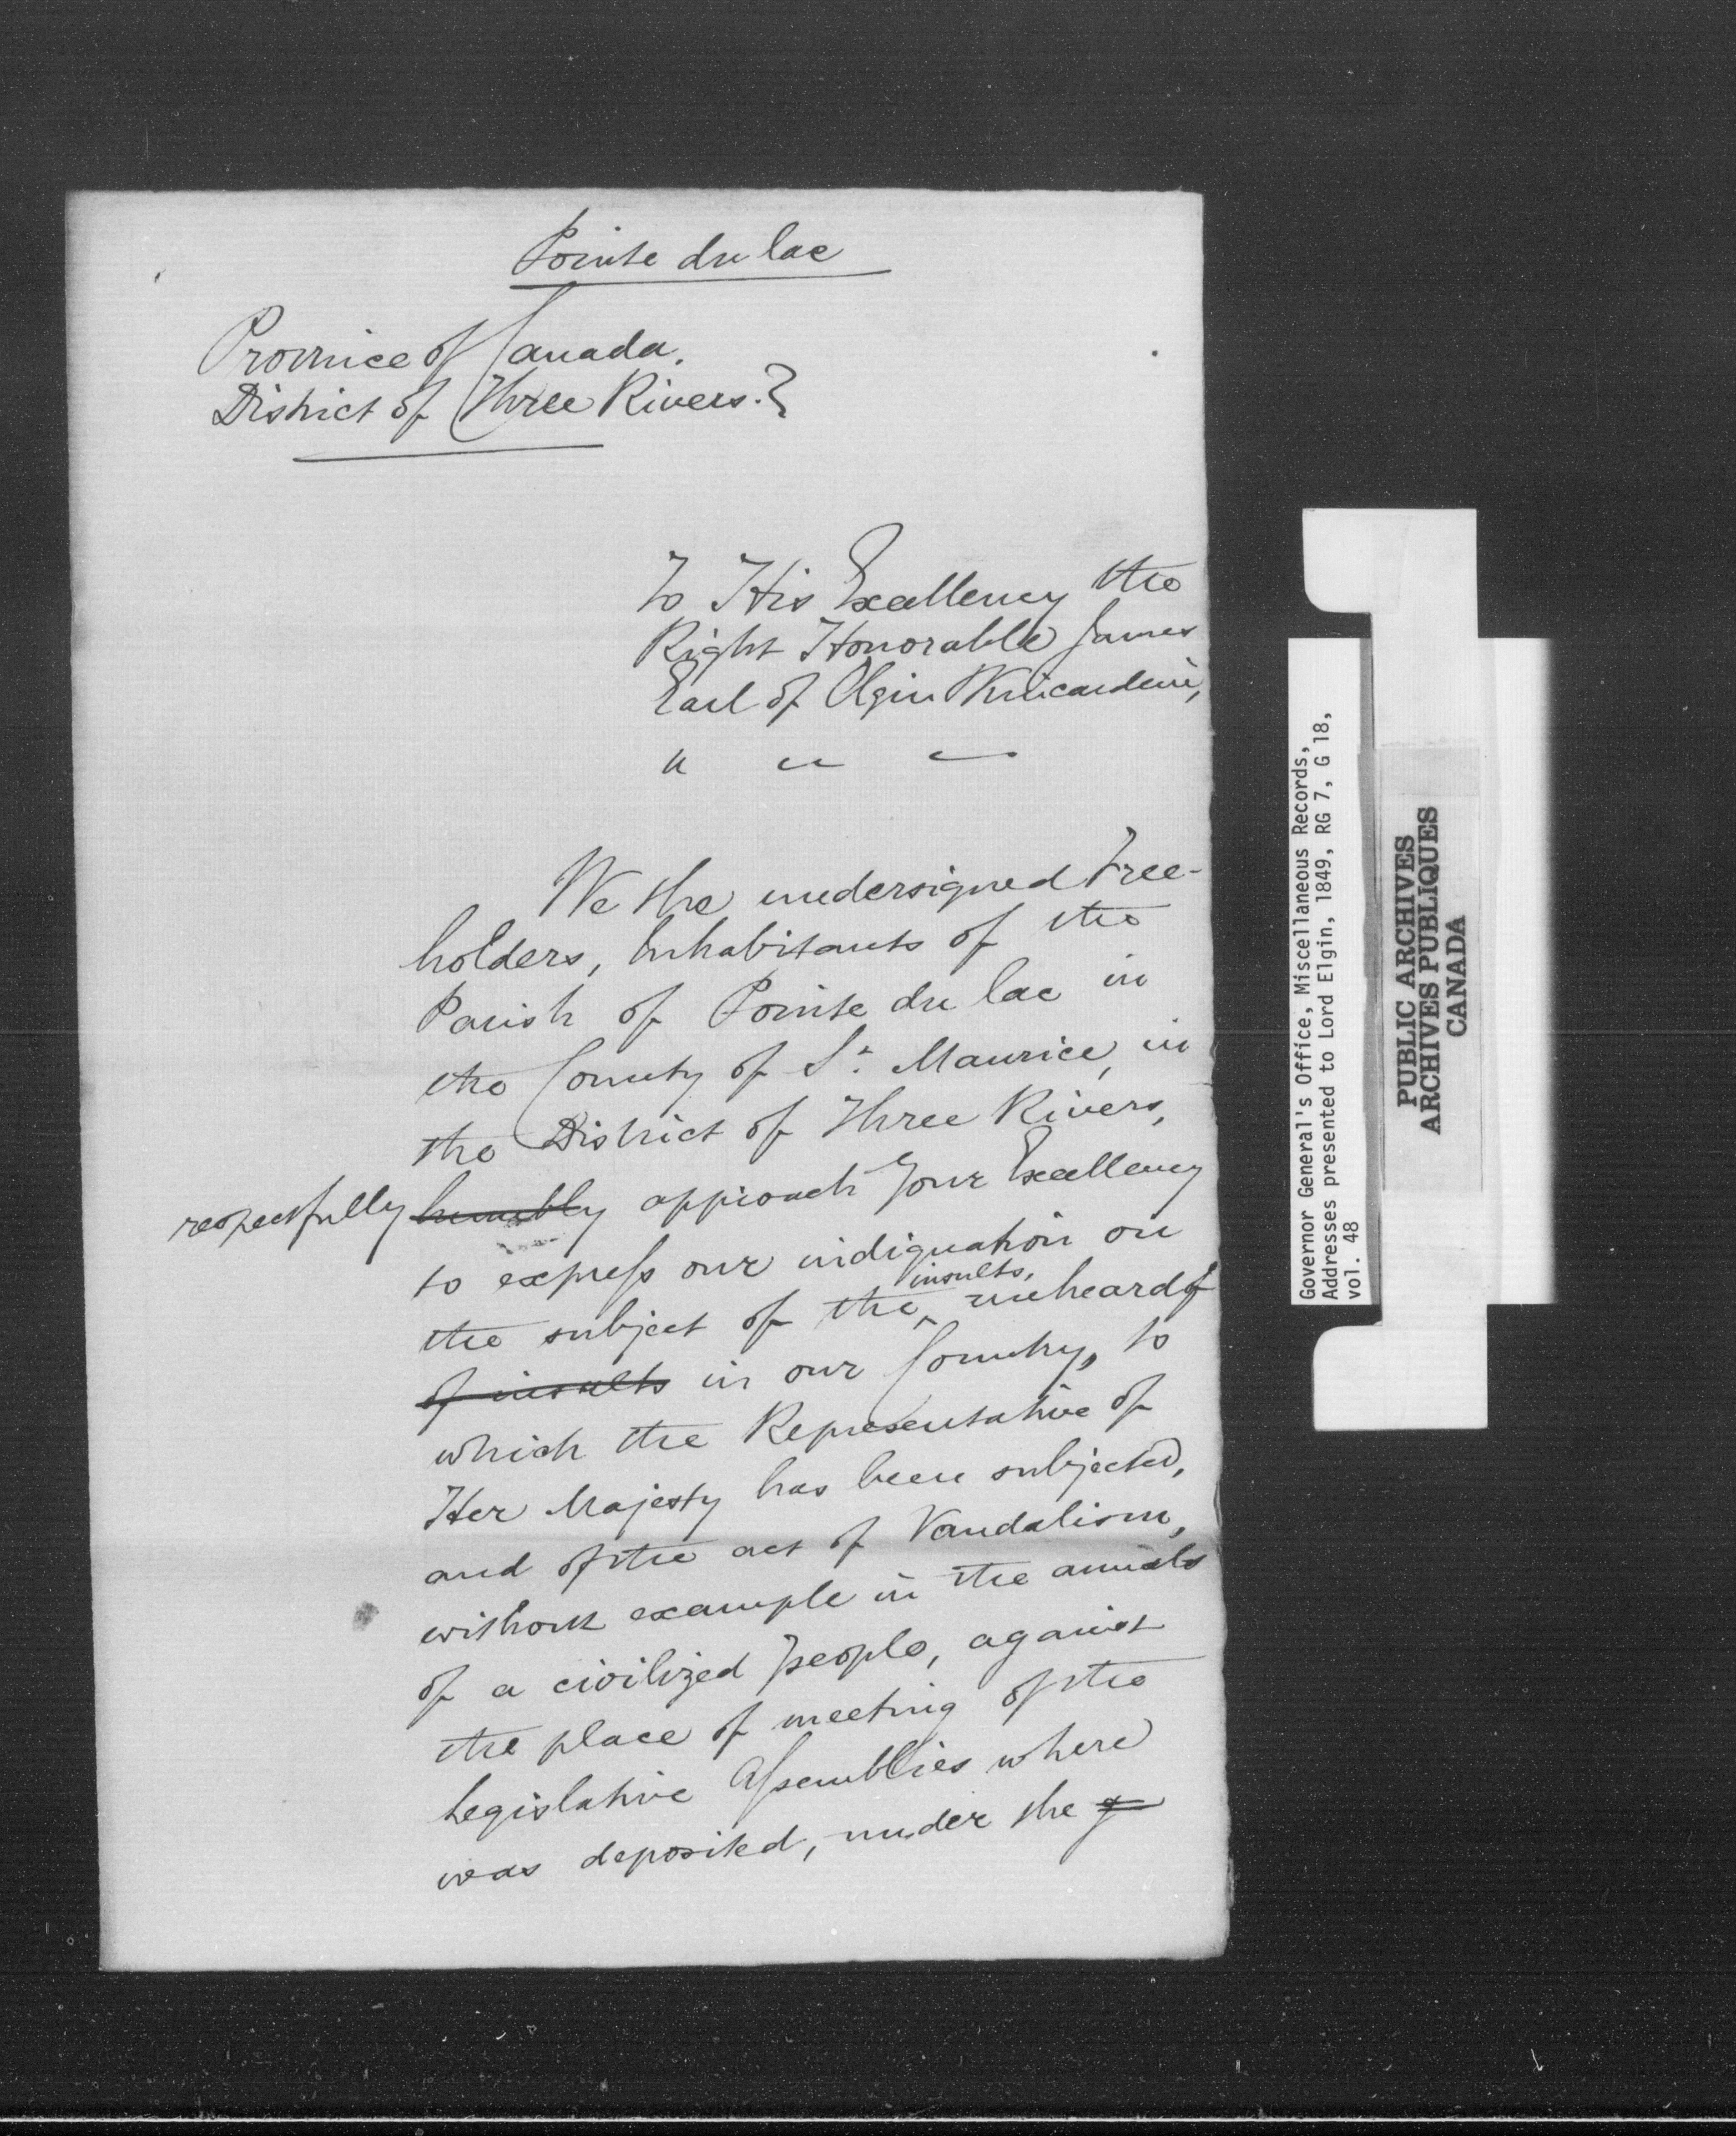 Pointe du lac
Province of Canada.
District of Three Rivers. }
To His Excellency the
Right Honorable James
Earl of Elgin & Kincardine,
" " "
We the undersigned Free-
holders, Inhabitants of the
Parish of Pointe du lac in
the County of St. Maurice, in
the District of Three Rivers,
respectfully humbly approach Your Excellency
to express our indignation on
the subject of the insults, unheard of
of insults in our Country, to
which the Representative of
Her Majesty has been subjected,
and of the act of Vandalism,
without example in the annals
of a civilized people, against
the place of meeting of the
Legislative Assemblies where
was deposited, under the
Governor General's Office, Miscellaneous Records,
Addresses presented to Lord Elgin, 1849, RG 7, G 18,
vol. 48
PUBLIC ARCHIVES
ARCHIVES PUBLIQUES
CANADA